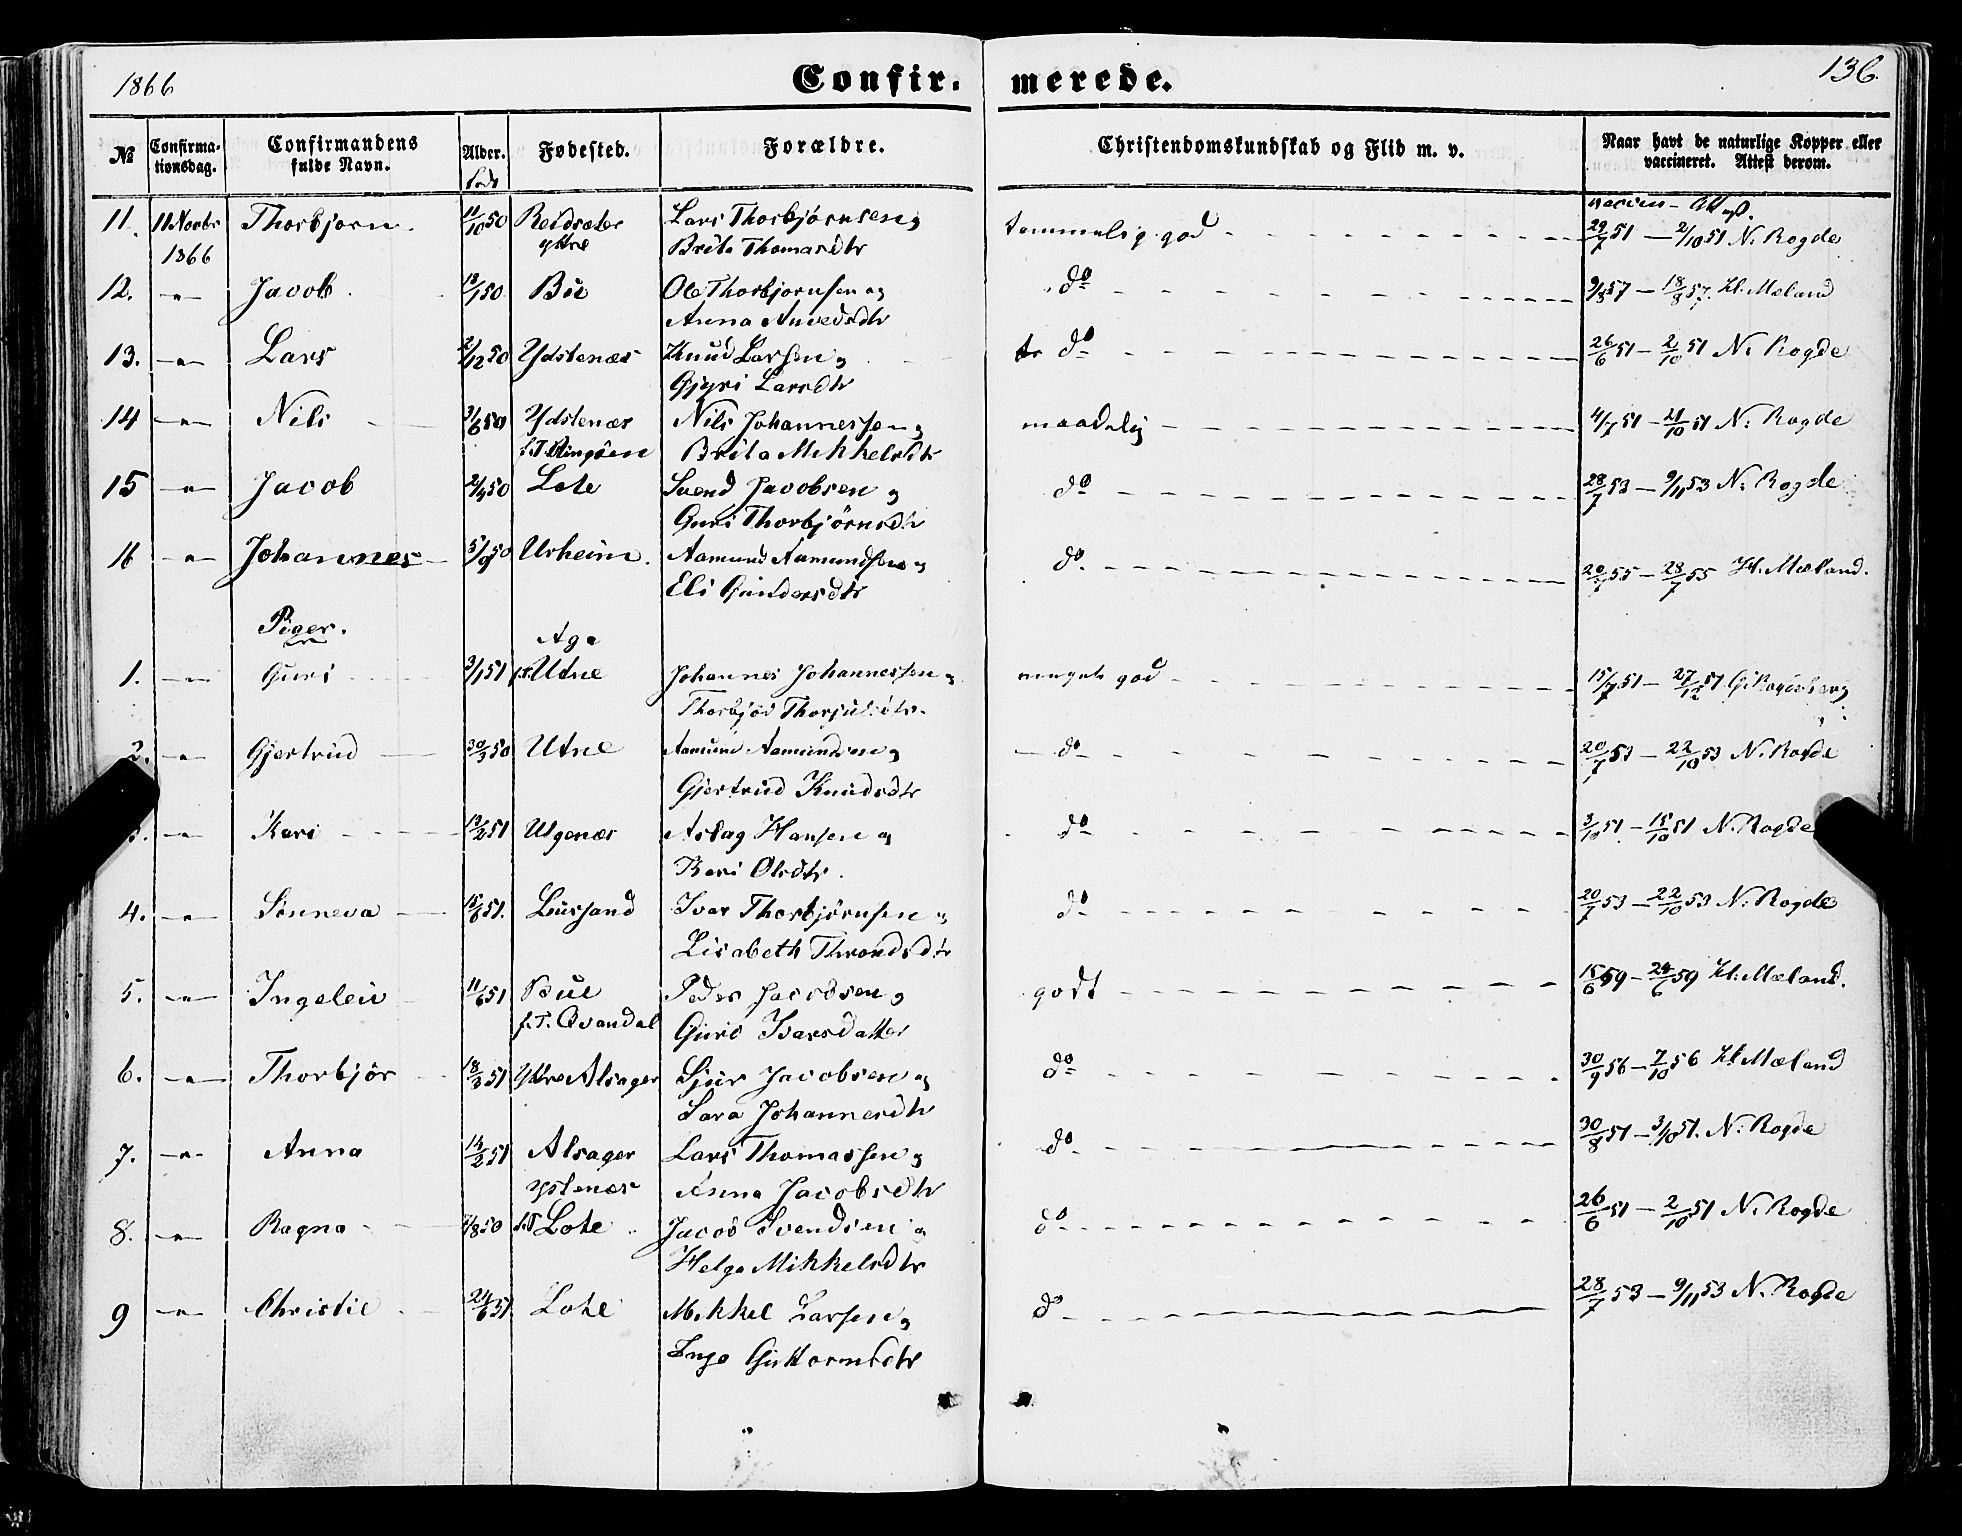 1866
Confirmerede.
136.
№ Confirmationsdag. Confirmandens fulde Navn. Alder. Fødested. Forældre. Christendomskundskab og Flid m. v. Naar havt de naturlige Kopper eller vaccineret. Attest derom.
født
vaccin - Att.
11. 11 Novbr Thorbjorn. 11/10 50 Reidsæter Lars Thorbjørnsen og temmelig god 29/7 51 — 2/10 51 N. Rogde
1866 ystre Brita Thomasdtr
12. — " — Jacob. 13/1 50 Bu Ole Thorbjornsen og do 9/8 57 — 18/8 57. H. Mæland
Anna Amvedsdtr
13. — " — Lars 2/12 50 Ydstenæs Knud Larsen og do 26/6 51 — 2/10 51 N. Rogde
Gjyri Larsdtr
14 — " — Nils 3/6 50 Ydstenæs Nils Johannessen og maadelig 4/7 51 — 21/10 51 N. Rogde
f. T. Brita Mikkelsdtr
15 — " — Jacob 2/4 50 Lote Svend Jacobsen og do 28/7 53 — 9/11 53 N. Rogde
Guri Thorbjörnsdtr
16 — " — Johannes 5/9 50 Urheim. Aamund Aamundsen og do 20/7 55 — 28/7 55 H. Mæland.
Eli Gundersdtr
Piger.
Aga
1. — " — Guri 3/1 51 f. T. Utne Johannes Johannessen og meget god 15/7 51 — 27/12 51 G.
Thorbjør
2. — " — Gjertrud 30/3 50 Utne Aamund Aamundsen og do 20/7 53 — 22/10 53 N. Rogde
Gjertrud Knudsdtr
— " — Kari 13/2 51 Ulgenæs Aslag Hansen og do 3/10 51 — 15/10 51 N. Rogde
Kari Olsdtr.
4. — " — Sünneva 15/6 51. Lussand Ivar Thorbjörnsen og do 20/7 53 — 22/10 53 N. Rogde
Lisabeth Throndsdtr
5. — " — Ingeleiv 11/6 51 Bue Peder Jacobsen og godt 15/6 59 — 24/6 59 H. Mæland.
f. T. Qvandal Guro Ivarsdatter
6. — " — Thorbjör 18/3 51 Ytre Alsager Sjur Jacobsen og do 30/9 56 — 7/10 56 H. Mæland
Sara Johannesdtr
7. — " — Anna 14/2 51 Alsager Lars Thomassen og do 30/8 51 — 3/10 51. N. Rogde
ystenæs Anna Jacobsdtr
8. — " — Ragna 7/8 50 f. T. Lote Jacob Svendsen og do 26/6 51 — 2/10 51 N. Rogde
Helga Mikkelsdtr
9 — " — Christie 24/6 51. Lote Mikkel Larsen og do 28/7 53 — 9/11 53 N. Rogde
Inga Guttormsdtr